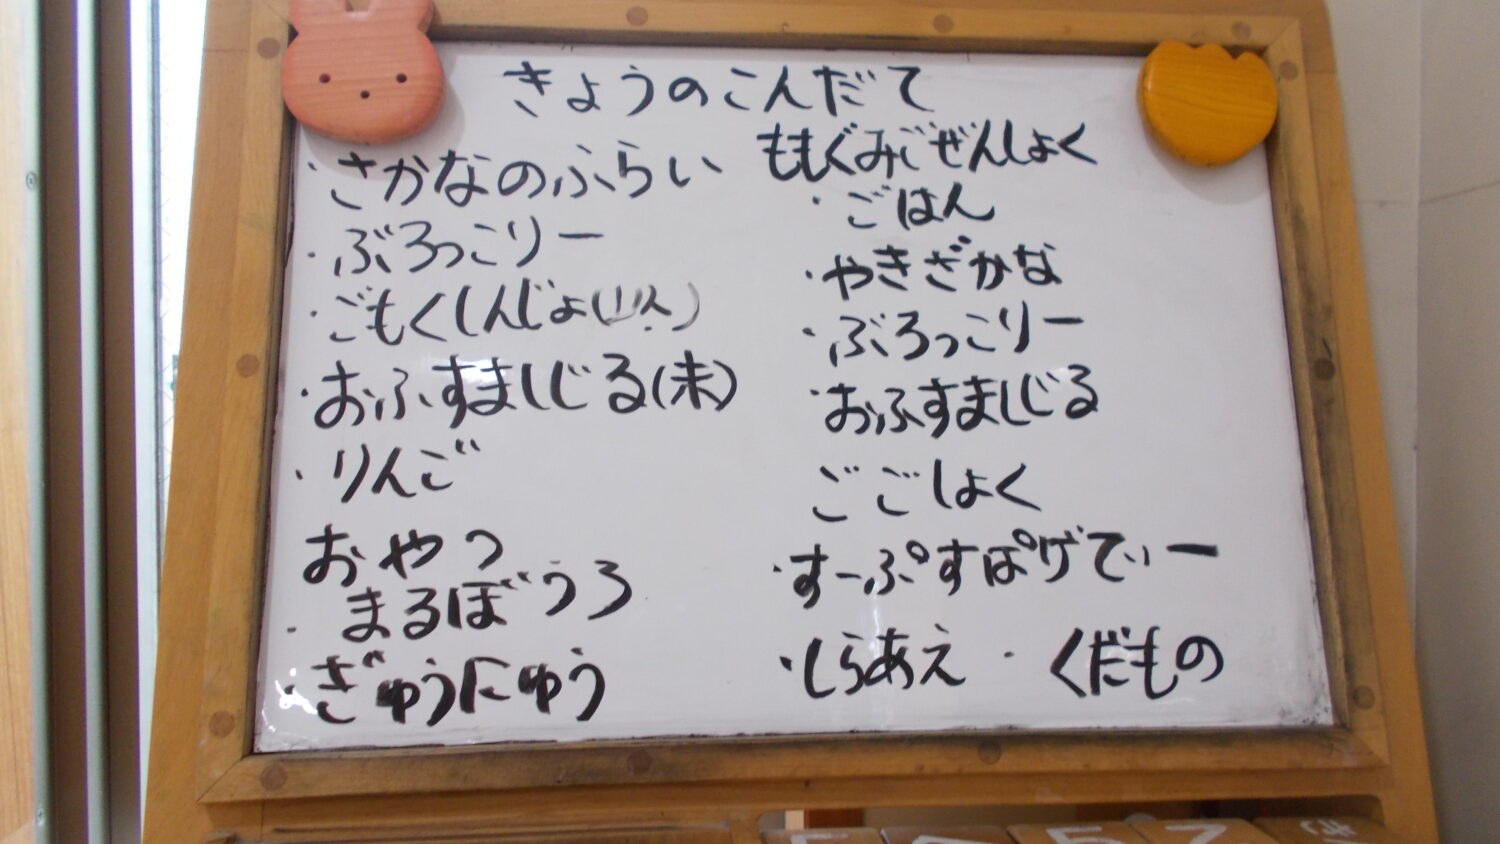 きょうのこんだて
・さかなのふらい
・ぶろっこりー
・ごもくしんじょ
・おふすましじる(未)
・りんご
おやつ
・まるぼうろ
・ぎゅうにゅう
ももぐみごぜんしょく
・ごはん
・やきざかな
・ぶろっこりー
・おふすましじる
ごごしょく
・すーぷすぱげてぃー
・しらあえ ・くだもの